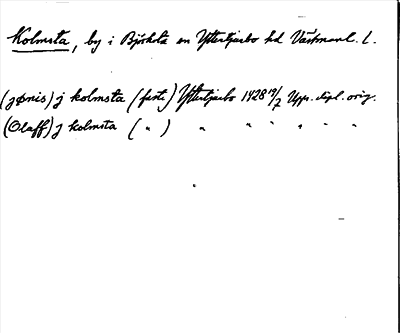 Kolmsta, by i Björksta sn Yttertjurbo hd Västmanl. l.
(jønis) j kolmsta (fasti) Yttertjurbo 1428 19/2 Upps. dipl. orig.
(Olaff) j kolmsta ( " ) " " " " " "